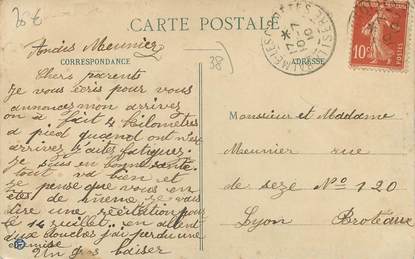 20 €
CARTE POSTALE
Andis Meunier
38
CORRESPONDANCE
ADRESSE
10
Chers parents
Je vous écris pour vous
annoncer mon arrives
on a fait 4 kilomètres
a pied quand ont n'est
arrivez
fatiguer.
Je suis en bonne santé
tout va bien et
je pense que vous en
êtes de même je vous
dire une récitation pour
le 14 juillet. en
deux boucles j'ai perdu une
chemise
Un gros baiser
Monsieur et Madame
Meunier rue
de seze Nº 120
Lyon Broteaux